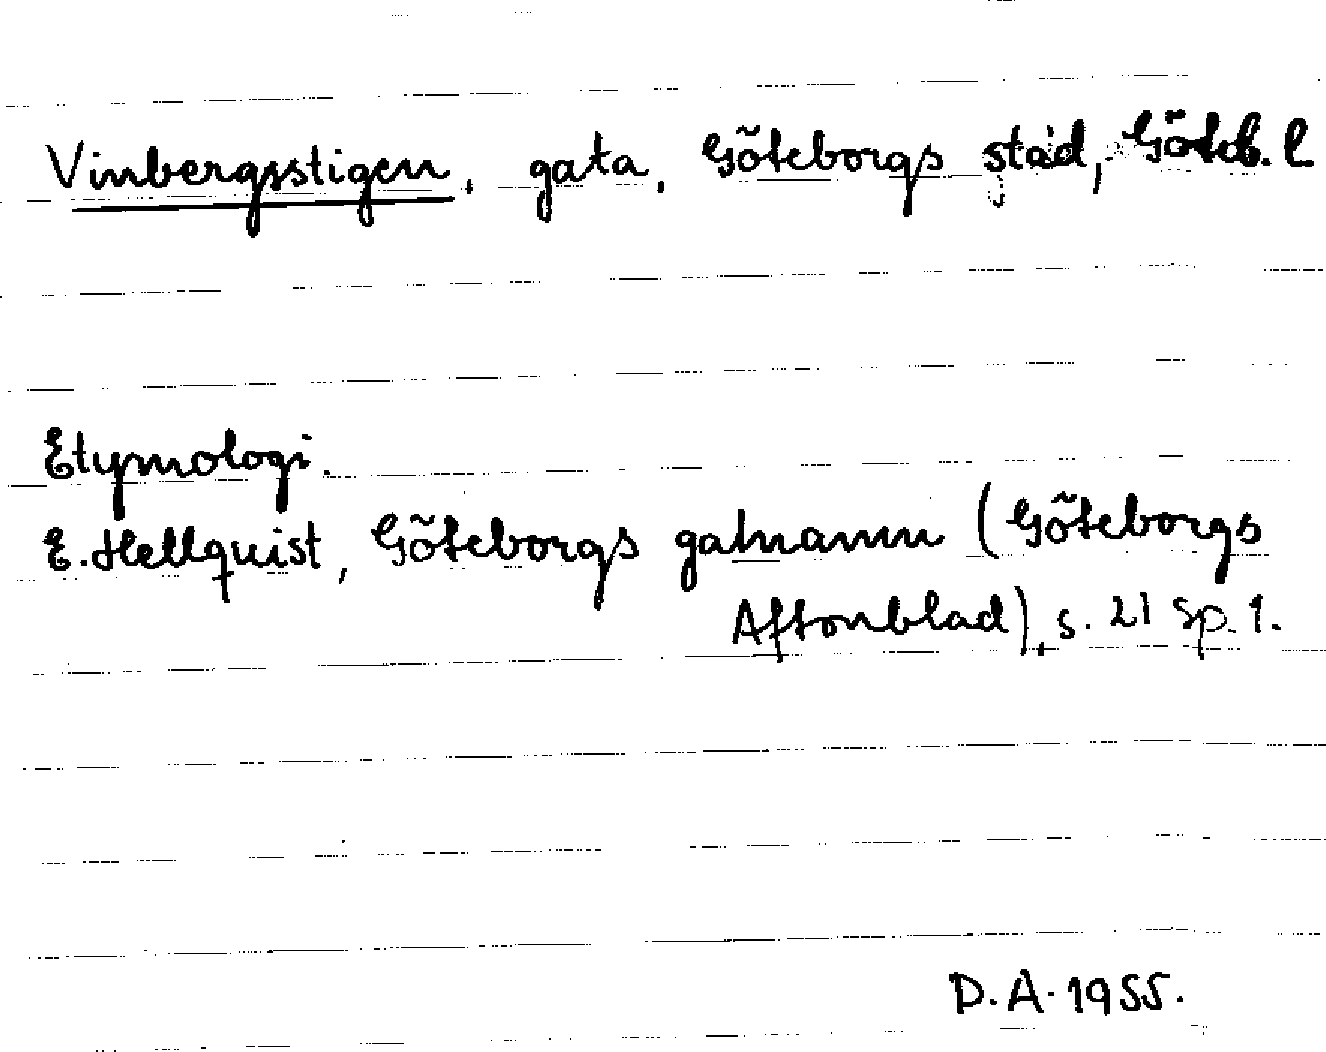 Vinbergsstigen, gata, Göteborgs stad, Göteb. l.
Etymologi.
E. Hellquist, Göteborgs gatnamn (Göteborgs
Aftonblad), s. 21 sp. 1.
D.A. 1955.